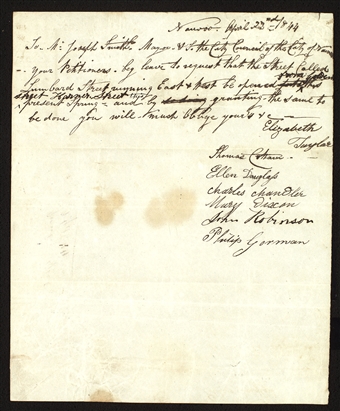 Nauvoo April 22nd 1844
To Mr Joseph Smith Mayor & to the City Council of the City of
your Petitioners beg leave to request that the Street called
Lumbard Street running East & West be opened from
street Street this
present Spring - and by granting the same to
be done you will much oblige yours &c
Elizabeth
Taylor
Thomas
Ellen Douglas
Charles Chandler
Mary Dixon
John Robinson
Philip Gorman